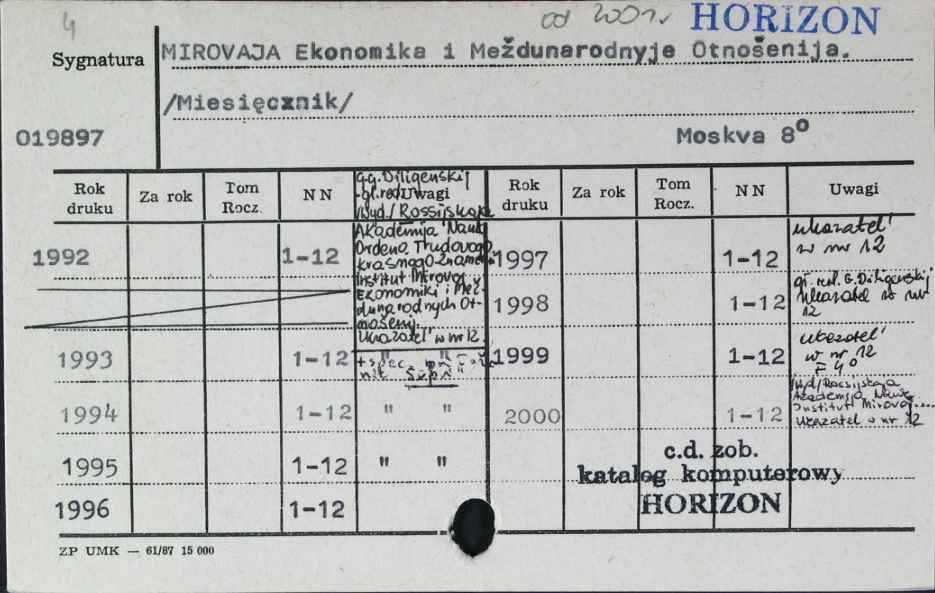 4 od 2001r. HORIZON
Sygnatura MIROVAJA Ekonomika i Meždunarodnyje Otnošenija.
/Miesięcznik/
019897 Moskva 8°
Rok druku Za rok Tom Rocz. N N Uwagi Rok druku Za rok Tom Rocz. N N Uwagi
G.G. Diligenskij
gł. red.
/Wyd./ Rossijskaja
Akademija Nauk
Ordena Trudovogo
Krasnogo Znameni
Institut Mirovoj
Ekonomiki i Mež-
dunarodnych Ot-
nošenij.
Ukazatel' w nr 12.
1992 1-12
1993 1-12
1994 1-12 " "
1995 1-12 " "
1996 1-12
1997 1-12 ukazatel'
w nr 12
1998 1-12 gł. red. G. Diligenskij
Ukazatel w nr
12
1999 1-12 ukazatel'
w nr 12
F 4°
2000 1-12 /Wyd/Rossijskaja
Akademija Nauk
Institut Mirovoj....
Ukazatel w nr 12
c.d. zob.
katalog komputerowy
HORIZON
ZP UMK — 61/87 15 000